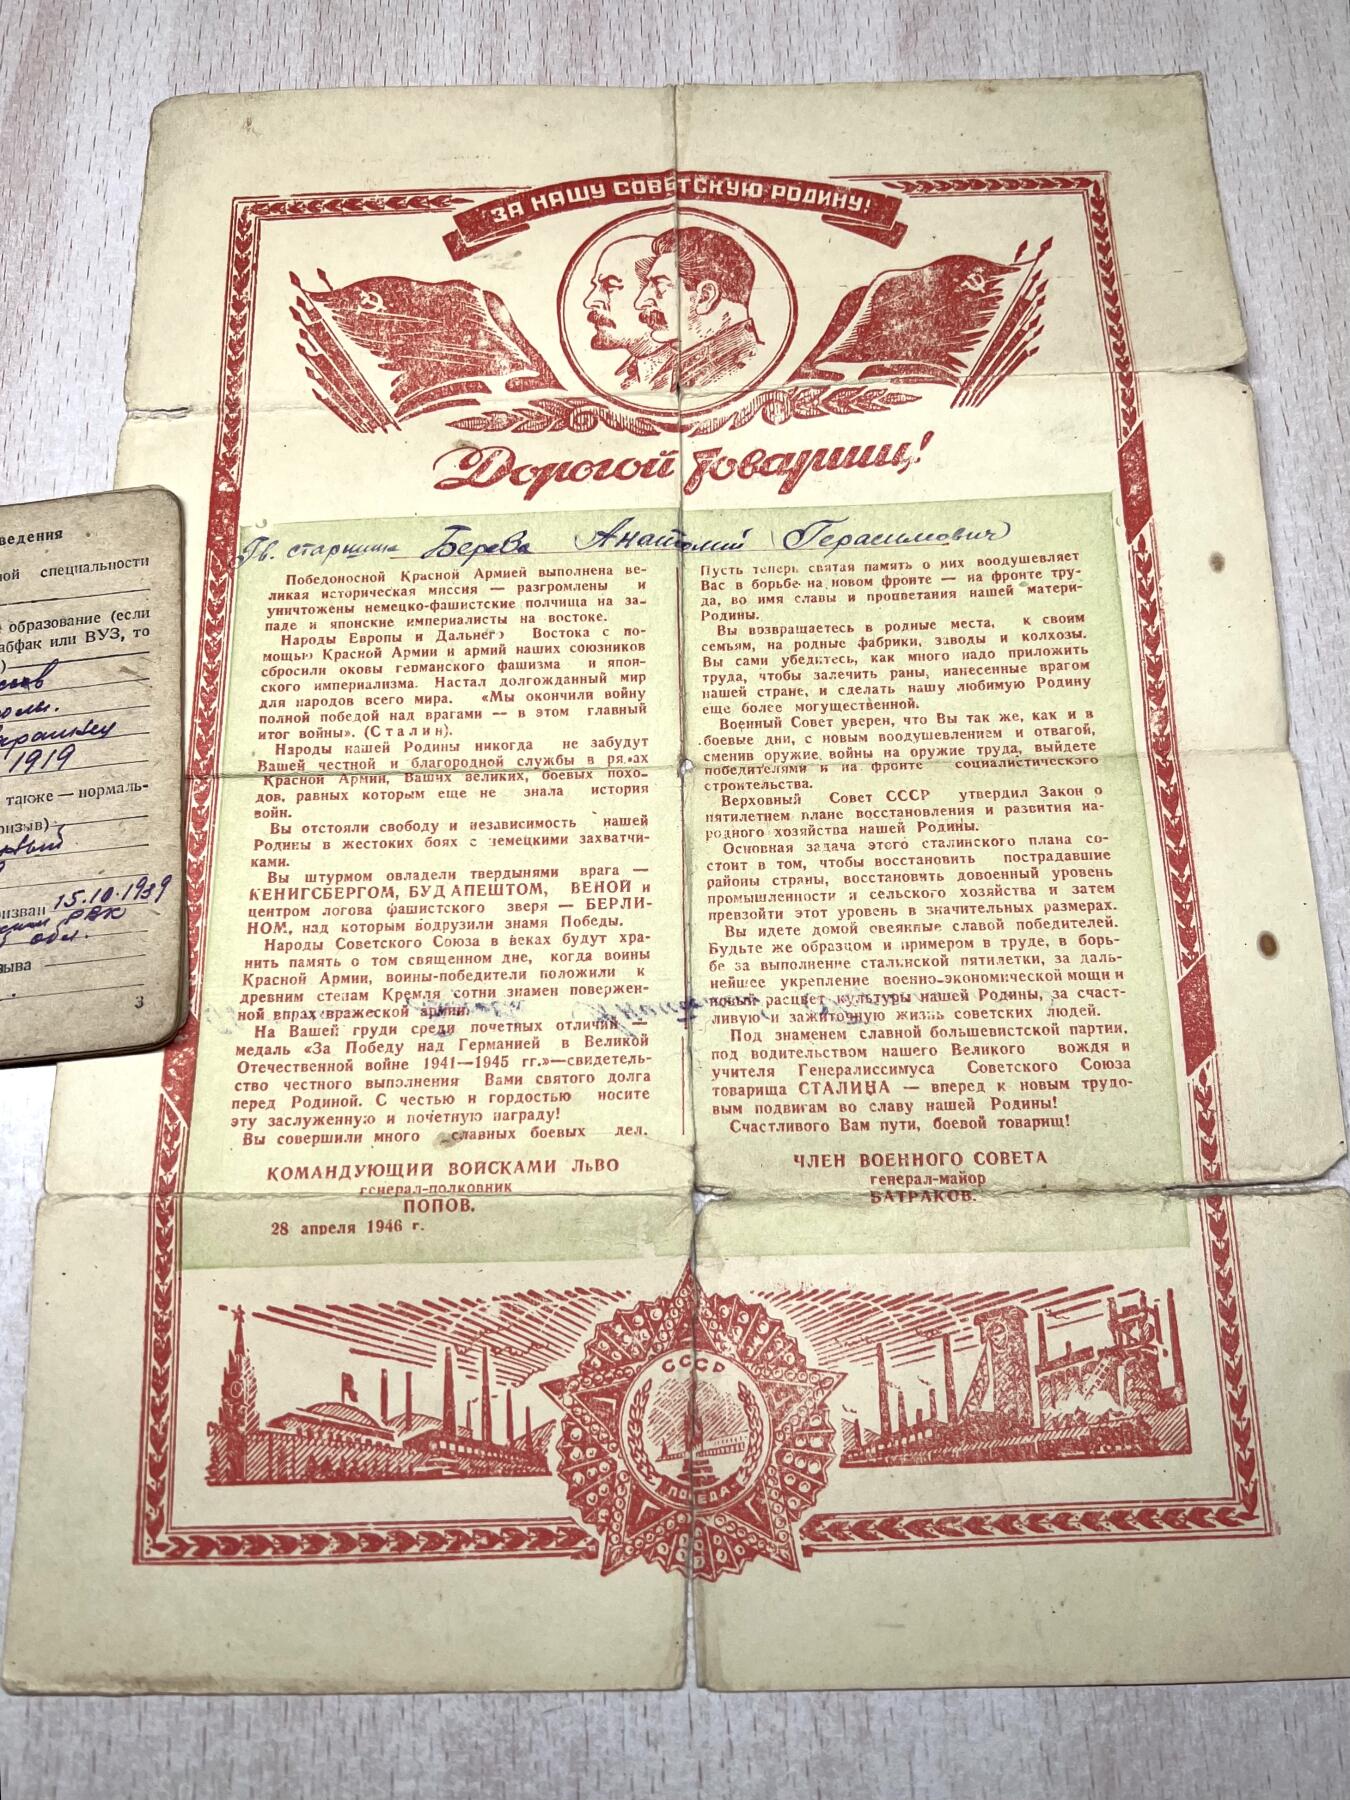 ЗА НАШУ СОВЕТСКУЮ РОДИНУ!
Дорогой товарищ!
Гв. старшина Берева Анатолий Герасимович
Победоносной Красной Армией выполнена ве-
ликая историческая миссия — разгромлены и
уничтожены немецко-фашистские полчища на за-
паде и японские империалисты на востоке.
Народы Европы и Дальнего Востока с по-
мощью Красной Армии и армий наших союзников
сбросили оковы германского фашизма и япон-
ского империализма. Настал долгожданный мир
для народов всего мира. «Мы окончили войну
полной победой над врагами — в этом главный
итог войны». (Сталин).
Народы нашей Родины никогда не забудут
Вашей честной и благородной службы в рядах
Красной Армии, Ваших великих, боевых похо-
дов, равных которым еще не знала история
войн.
Вы отстояли свободу и независимость нашей
Родины в жестоких боях с немецкими захватчи-
ками.
Вы штурмом овладели твердынями врага —
КЕНИГСБЕРГОМ, БУДАПЕШТОМ, ВЕНОЙ и
центром логова фашистского зверя — БЕРЛИ-
НОМ, над которым водрузили знамя Победы.
Народы Советского Союза в веках будут хра-
нить память о том священном дне, когда воины
Красной Армии, воины-победители положили к
древним стенам Кремля сотни знамен повержен-
ной впрах вражеской армии.
На Вашей груди среди почетных отличий —
медаль «За Победу над Германией в Великой
Отечественной войне 1941—1945 гг.»—свидетель-
ство честного выполнения Вами святого долга
перед Родиной. С честью и гордостью носите
эту заслуженную и почетную награду!
Вы совершили много славных боевых дел.
КОМАНДУЮЩИЙ ВОЙСКАМИ ЛьВО
генерал-полковник
ПОПОВ.
28 апреля 1946 г.
Пусть теперь святая память о них воодушевляет
Вас в борьбе на новом фронте — на фронте тру-
да, во имя славы и процветания нашей матери-
Родины.
Вы возвращаетесь в родные места, к своим
семьям, на родные фабрики, заводы и колхозы.
Вы сами убедитесь, как много надо приложить
труда, чтобы залечить раны, нанесенные врагом
нашей стране, и сделать нашу любимую Родину
еще более могущественной.
Военный Совет уверен, что Вы так же, как и в
боевые дни, с новым воодушевлением и отвагой,
сменив оружие войны на оружие труда, выйдете
победителями и на фронте социалистического
строительства.
Верховный Совет СССР утвердил Закон о
пятилетнем плане восстановления и развития на-
родного хозяйства нашей Родины.
Основная задача этого сталинского плана со-
стоит в том, чтобы восстановить пострадавшие
районы страны, восстановить довоенный уровень
промышленности и сельского хозяйства и затем
превзойти этот уровень в значительных размерах.
Вы идете домой овеянные славой победителей.
Будьте же образцом и примером в труде, в борь-
бе за выполнение сталинской пятилетки, за даль-
нейшее укрепление военно-экономической мощи и
новый расцвет культуры нашей Родины, за счаст-
ливую и зажиточную жизнь советских людей.
Под знаменем славной большевистской партии,
под водительством нашего Великого вождя и
учителя Генералиссимуса Советского Союза
товарища СТАЛИНА — вперед к новым трудо-
вым подвигам во славу нашей Родины!
Счастливого Вам пути, боевой товарищ!
ЧЛЕН ВОЕННОГО СОВЕТА
генерал-майор
БАТРАКОВ.
СССР
ПОБЕДА
ведения
ной специальности
образование (если
абфак или ВУЗ, то
1919
также — нормаль-
ризыв)
ризван 15.10.1939
РВК
обл.
зыва
3